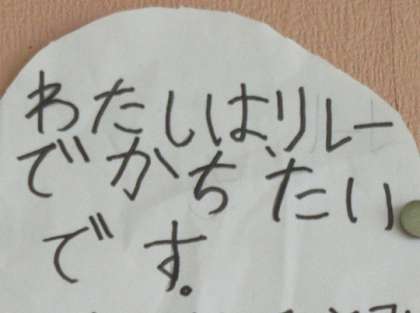 わたしは、リレー
でかちたい
です。